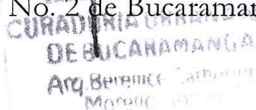 No. 2 de Bucaramar
CURADURIA URBANA
DE BUCARAMANGA
Arq. Berenice
Moreno